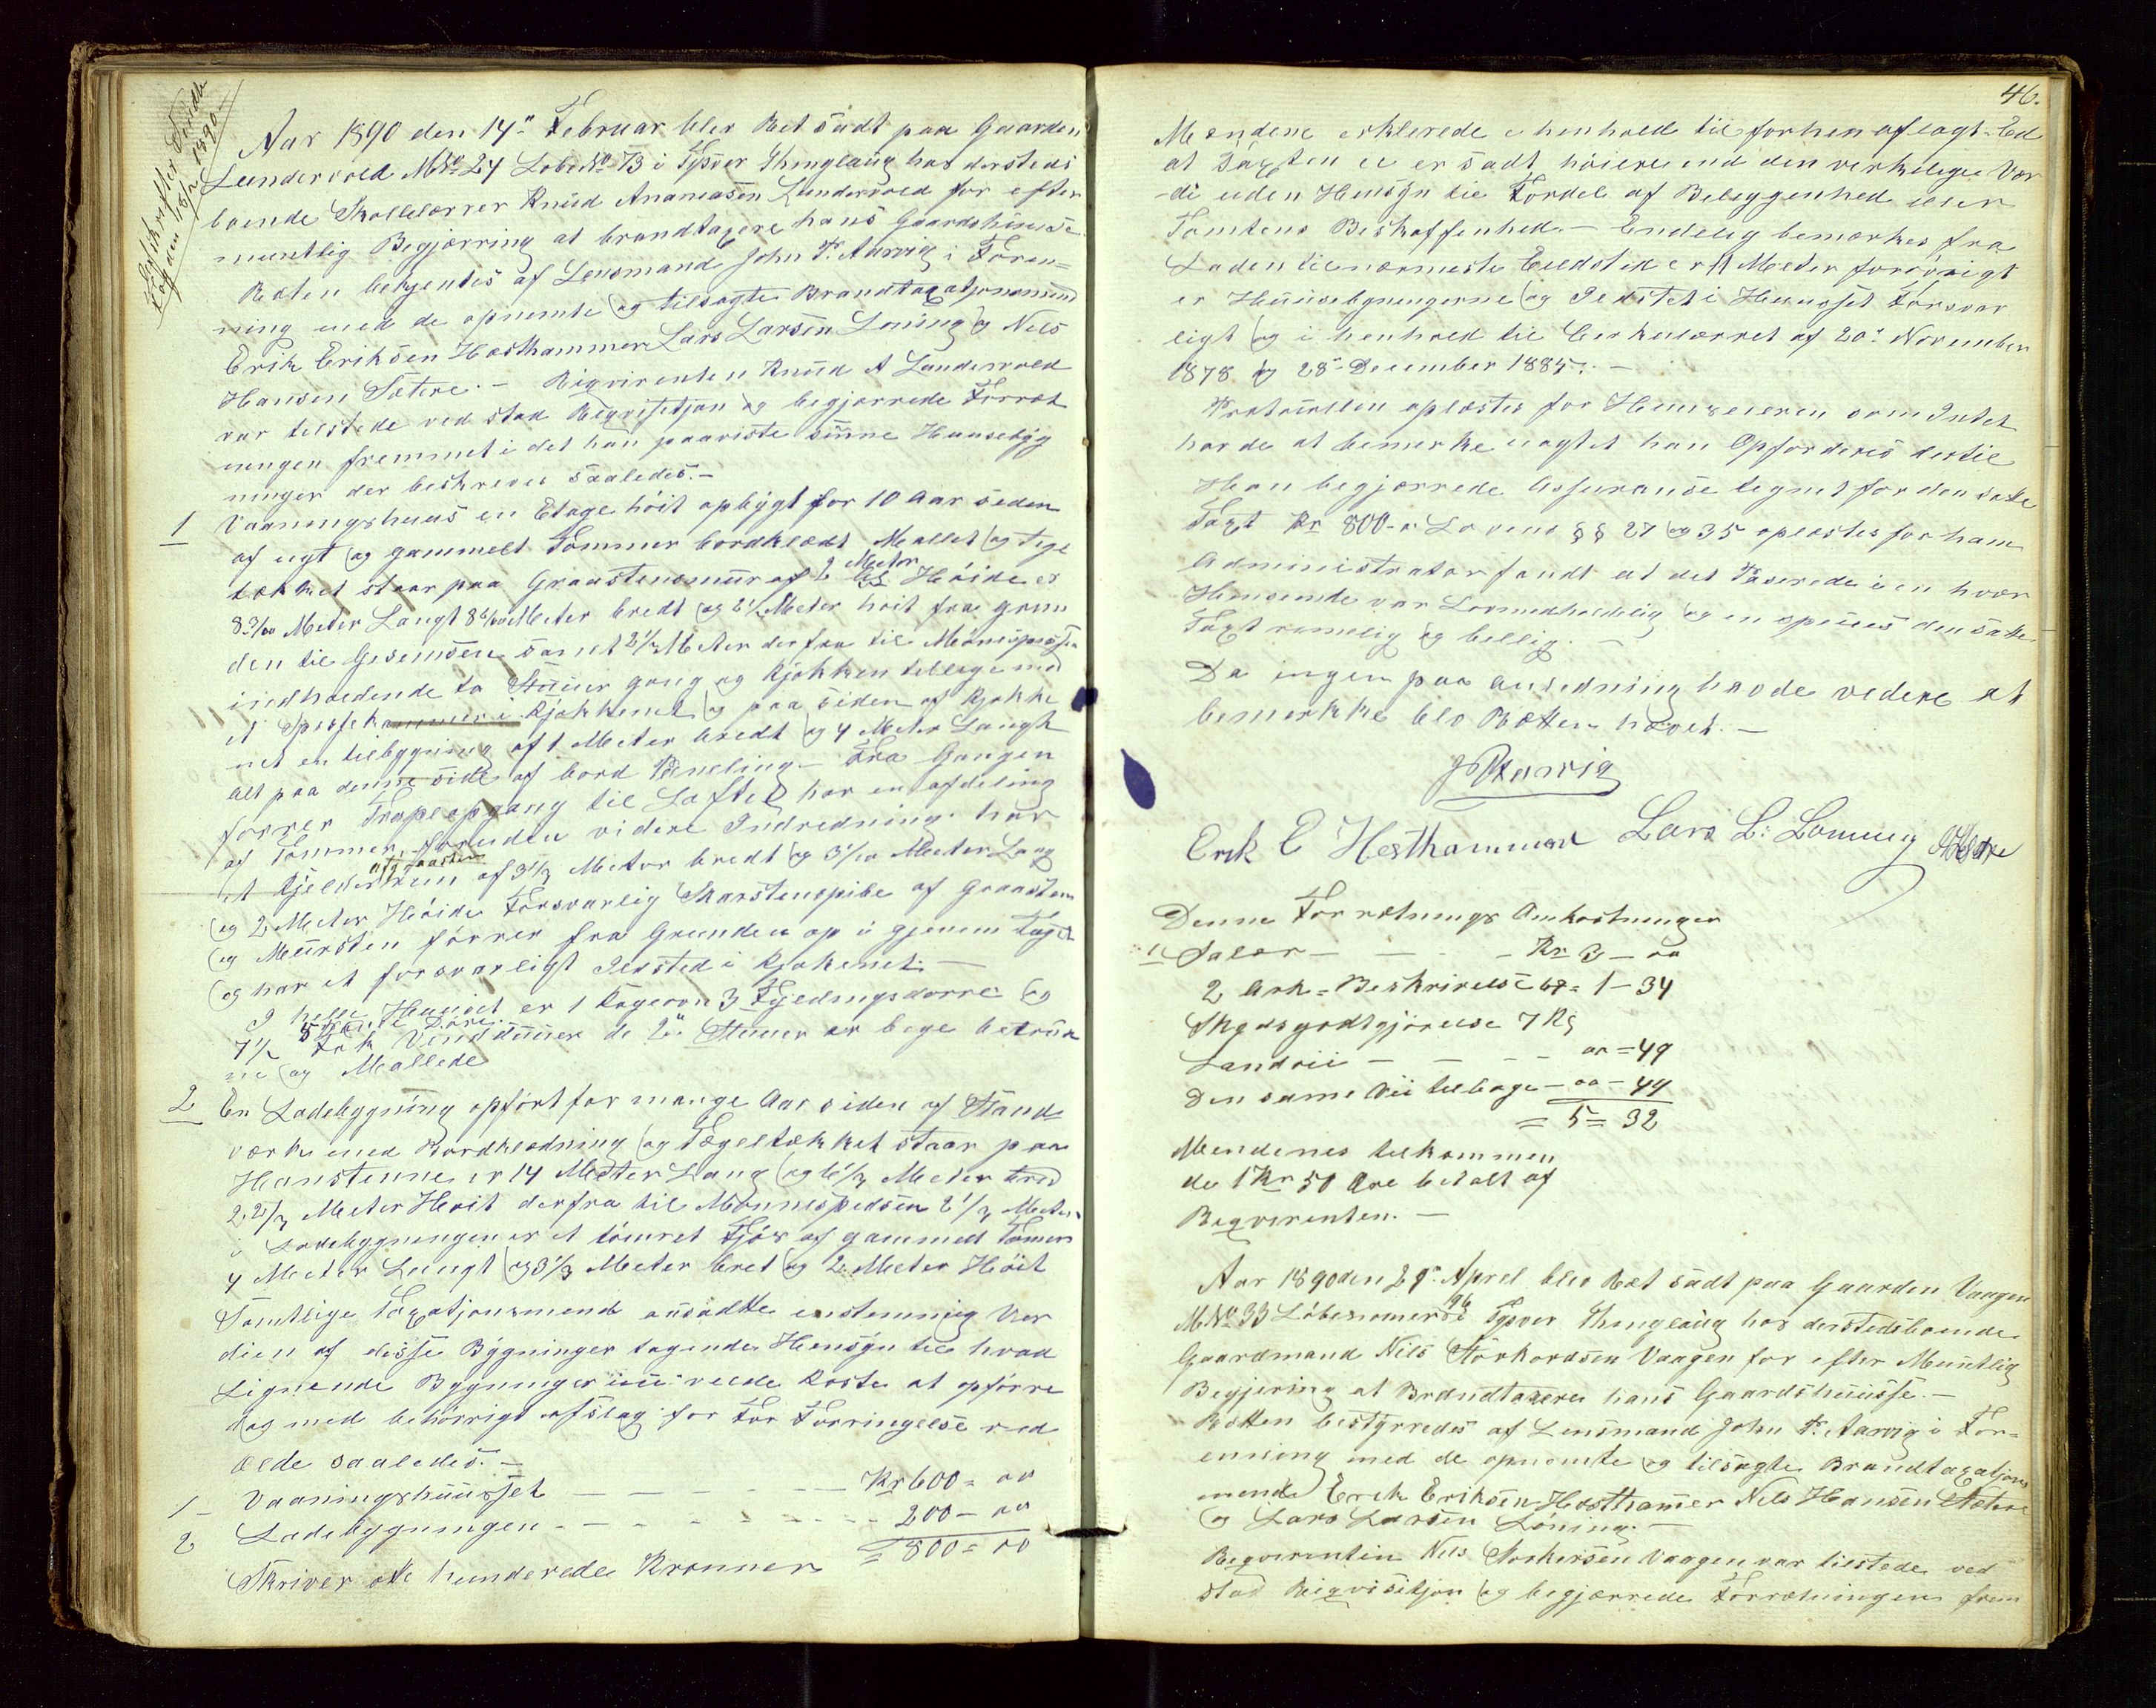 Udskrifter
Tag den 18/2 1890.
Aar 1890 den 14de Februar blev Ret sadt paa Gaarden
Lundervold M No 24 Lobe No 73 i Tysver Thinglaug hos dersteds
boende Skollelærrer Knud Ananiasen Lundervold for efter
muntlig Begjæring at brandtaxere hans Gaardshuuse.
Reten bekjentes af Lensmand John P. Aarvig i Foren=
ning med de opnemte og tilsagte Brandtaxatjonsmend
Erik Eriksen Hesthammer Lars Larsen Loning og Nils
Hansen Sætere. - Reqvirenten Knud A Lundervold
var tilstede ved stad Reqvisitjon og begjærrede Forret
ningen fremmet i det han paaviste sinne Huusebyg
ninger der beskreves saaledes. -
1 Vaaningshuus en Etage høit opbygt for 10 Aar siden
af nyt og gammelt Tømmer bordklædt Mallet og Tegl
tækket staar paa Graastensmuur af 2 Meter Høide er
8 3/10 Meter Langt 8 6/10 Meter bredt og 2 1/2 Meter høit fra grun
den til Gesemsen samt 2 1/2 Meter derfra til Mønespidsen
indholdende to Stuuer gang og Kjøkken tillige med
et Spissekammer i Kjøkkenet og paa siden af Kjøkke
net en tilbygning af 1 Meter bredt og 4 Meter Langt
alt paa denne side af bord Paneling - Fra Gangen
førrer Trapeopgang til Loftet har en afdeling
af Tømmer foruden videre Indredning. har
et Kjelderrum af graasten af 3 1/3 Meter bredt og 3 1/10 Meter Lang
og 2 Meter Høide Forsvarlig Skarstenspibe af Graasten
og Muursten førrer fra Grunden op i gjenem Taget
og har et forsvarligt Ildsted i Kjøkenet. -
I helle Huuset er 1 Kogeovn 3 Fyldingsdørre og
5 Dørre.
7 1/2 Fok Vinduuer de 2de Stuuer er bege betruk
ne og Mallede
2 En Ladebygning opført for mange Aar siden af Stand
værk med Bordklædning og Tegeltækket staar paa
Hanstenne er 14 Meter Lang og 6 1/3 Meter bred
2 2/3 Meter Høit derfra til Mønnespidsen 2 1/3 Meter
i Ladebygningen er et tømret Fjøs af gammelt Tømer
4 Meter Langt og 3 1/3 Meter bret og 2 Meter Høit
Samtlige Taxatjonsmend ansadtte enstemmig Vær
dien af disse Bygninger tagende Hensyn til hvad
Lignende Bygninger vilde koste at opførre
og med behørrigt afslag for For Forringelse ved
ælde saaledes. -
1 - Vaaningshuusset - - - - - Kr 600 = 00
2 Ladebygningen - - - - - - 200 - 00
= 800 = 00
Skriver otte hunderede Kronner
46.
Mændene erklerede i henhold til forhen aflagt Ed
at Taxten ei er sadt høiere end den verkelige Vær
-di uden Hensyn til Fordel af Beleggenhed eller
Tomtens Beskaffenhed. - Endelig bemærkes fra
Laden til nærmeste Ieldsted er 11 Meter forøvrigt
er Huusebygningerne og Ildstet i Huusset Forsvar
ligt og i henhold til Cirkulærret af 20de November
1878 og 28de December 1885. -
Protocollen oplæstes for Huuseieren som Intet
havde at bemerke uagtet han Opforderes dertil
Han begjærrede Assuranse tegnet for den satte
Taxt Kr 800 - Lovens §§ 27 og 35 oplæstes for ham
Administrator fandt at det Paserede i en hver
Henseende var Lovmedholdelig og en speciel den satte
Taxt rimelig og billig. -
Da ingen paa anledning havde videre at
bemerkke blev Retten hævet. -
J P Aarvig
Erik E Hesthammer Lars L: Loning
Denne Forretnings Omkostninger
1. Salær - - - - Kr 3 - 00
2 Ark = Beskrivelse 67 = 1 - 34
Skydsgodtgjørelse 7 Kg
Landvei - - - - 00 = 49
Den same Vei tilbage - 00 - 49
= 5 = 32
Mendenes tilkommen
de 1 Kr 50 Øre betalt af
Reqvirenten. -
Aar 1890 den 29de Aprel blev Ret sadt paa Gaarden Vaagen
M No 33 Løbenomer 96 i Tysver Thinglaug hos derstedsboende
Gaardmand Nils Storkordsen Vaagen for efter Muntlig
Begjering at Brandtaxere hans Gaardshuusse. -
Retten bestyrredes af Lensmand John P. Aarvig i For=
enning med de opnemte og tilsagte Brandtaxatjons
mend Erik Eriksen Hesthamer Nils Hansen Sætere
og Lars Larsen Loning. -
Reqverentin Nils Storkersen Vaagen var tilstede ved
stad Reqvisitjon og begjærrede Forretningen frem